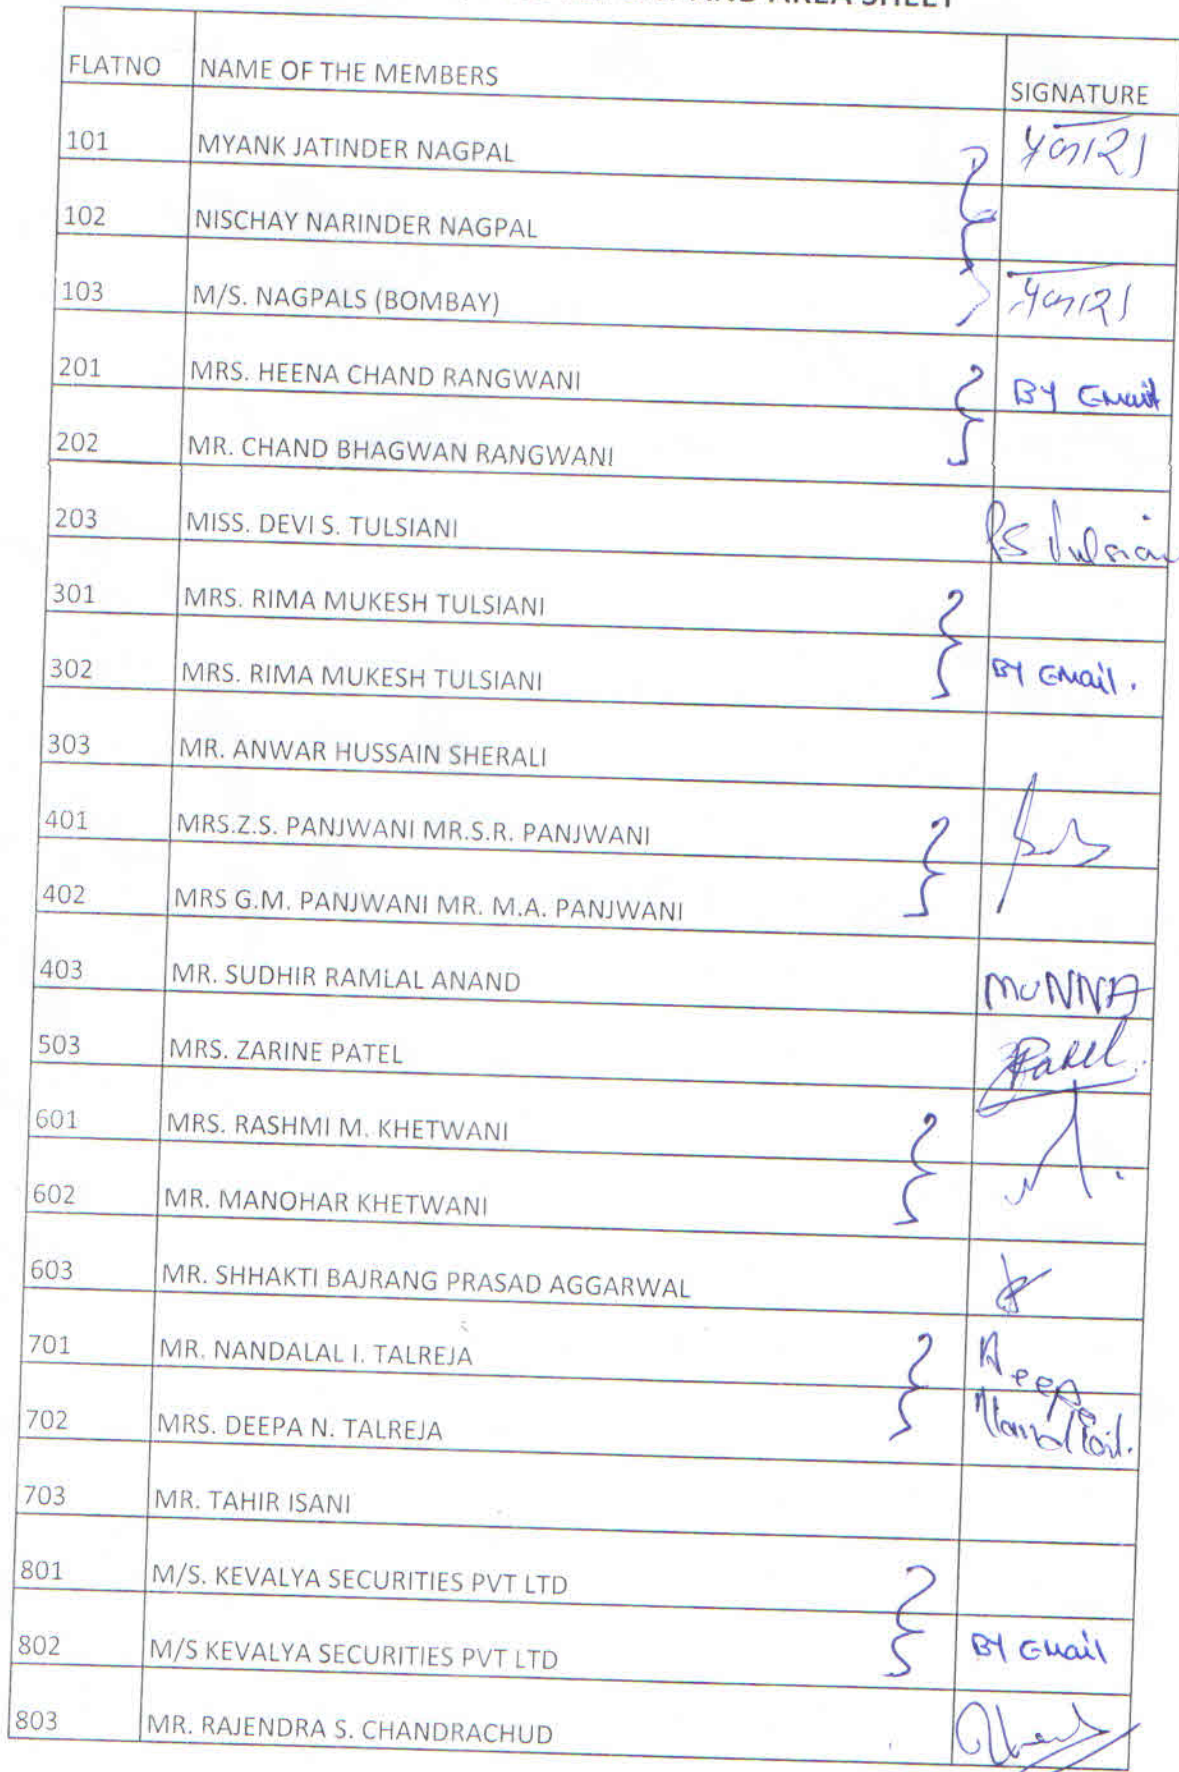 AND AREA SHEET
FLATNO NAME OF THE MEMBERS SIGNATURE
101 MYANK JATINDER NAGPAL
102 NISCHAY NARINDER NAGPAL
103 M/S. NAGPALS (BOMBAY)
201 MRS. HEENA CHAND RANGWANI BY EMail
202 MR. CHAND BHAGWAN RANGWANI
203 MISS. DEVI S. TULSIANI
301 MRS. RIMA MUKESH TULSIANI
302 MRS. RIMA MUKESH TULSIANI BY EMail.
303 MR. ANWAR HUSSAIN SHERALI
401 MRS.Z.S. PANJWANI MR.S.R. PANJWANI
402 MRS G.M. PANJWANI MR. M.A. PANJWANI
403 MR. SUDHIR RAMLAL ANAND MUNNA
503 MRS. ZARINE PATEL
601 MRS. RASHMI M. KHETWANI
602 MR. MANOHAR KHETWANI
603 MR. SHHAKTI BAJRANG PRASAD AGGARWAL
701 MR. NANDALAL I. TALREJA
702 MRS. DEEPA N. TALREJA
703 MR. TAHIR ISANI
801 M/S. KEVALYA SECURITIES PVT LTD
802 M/S KEVALYA SECURITIES PVT LTD BY EMail
803 MR. RAJENDRA S. CHANDRACHUD